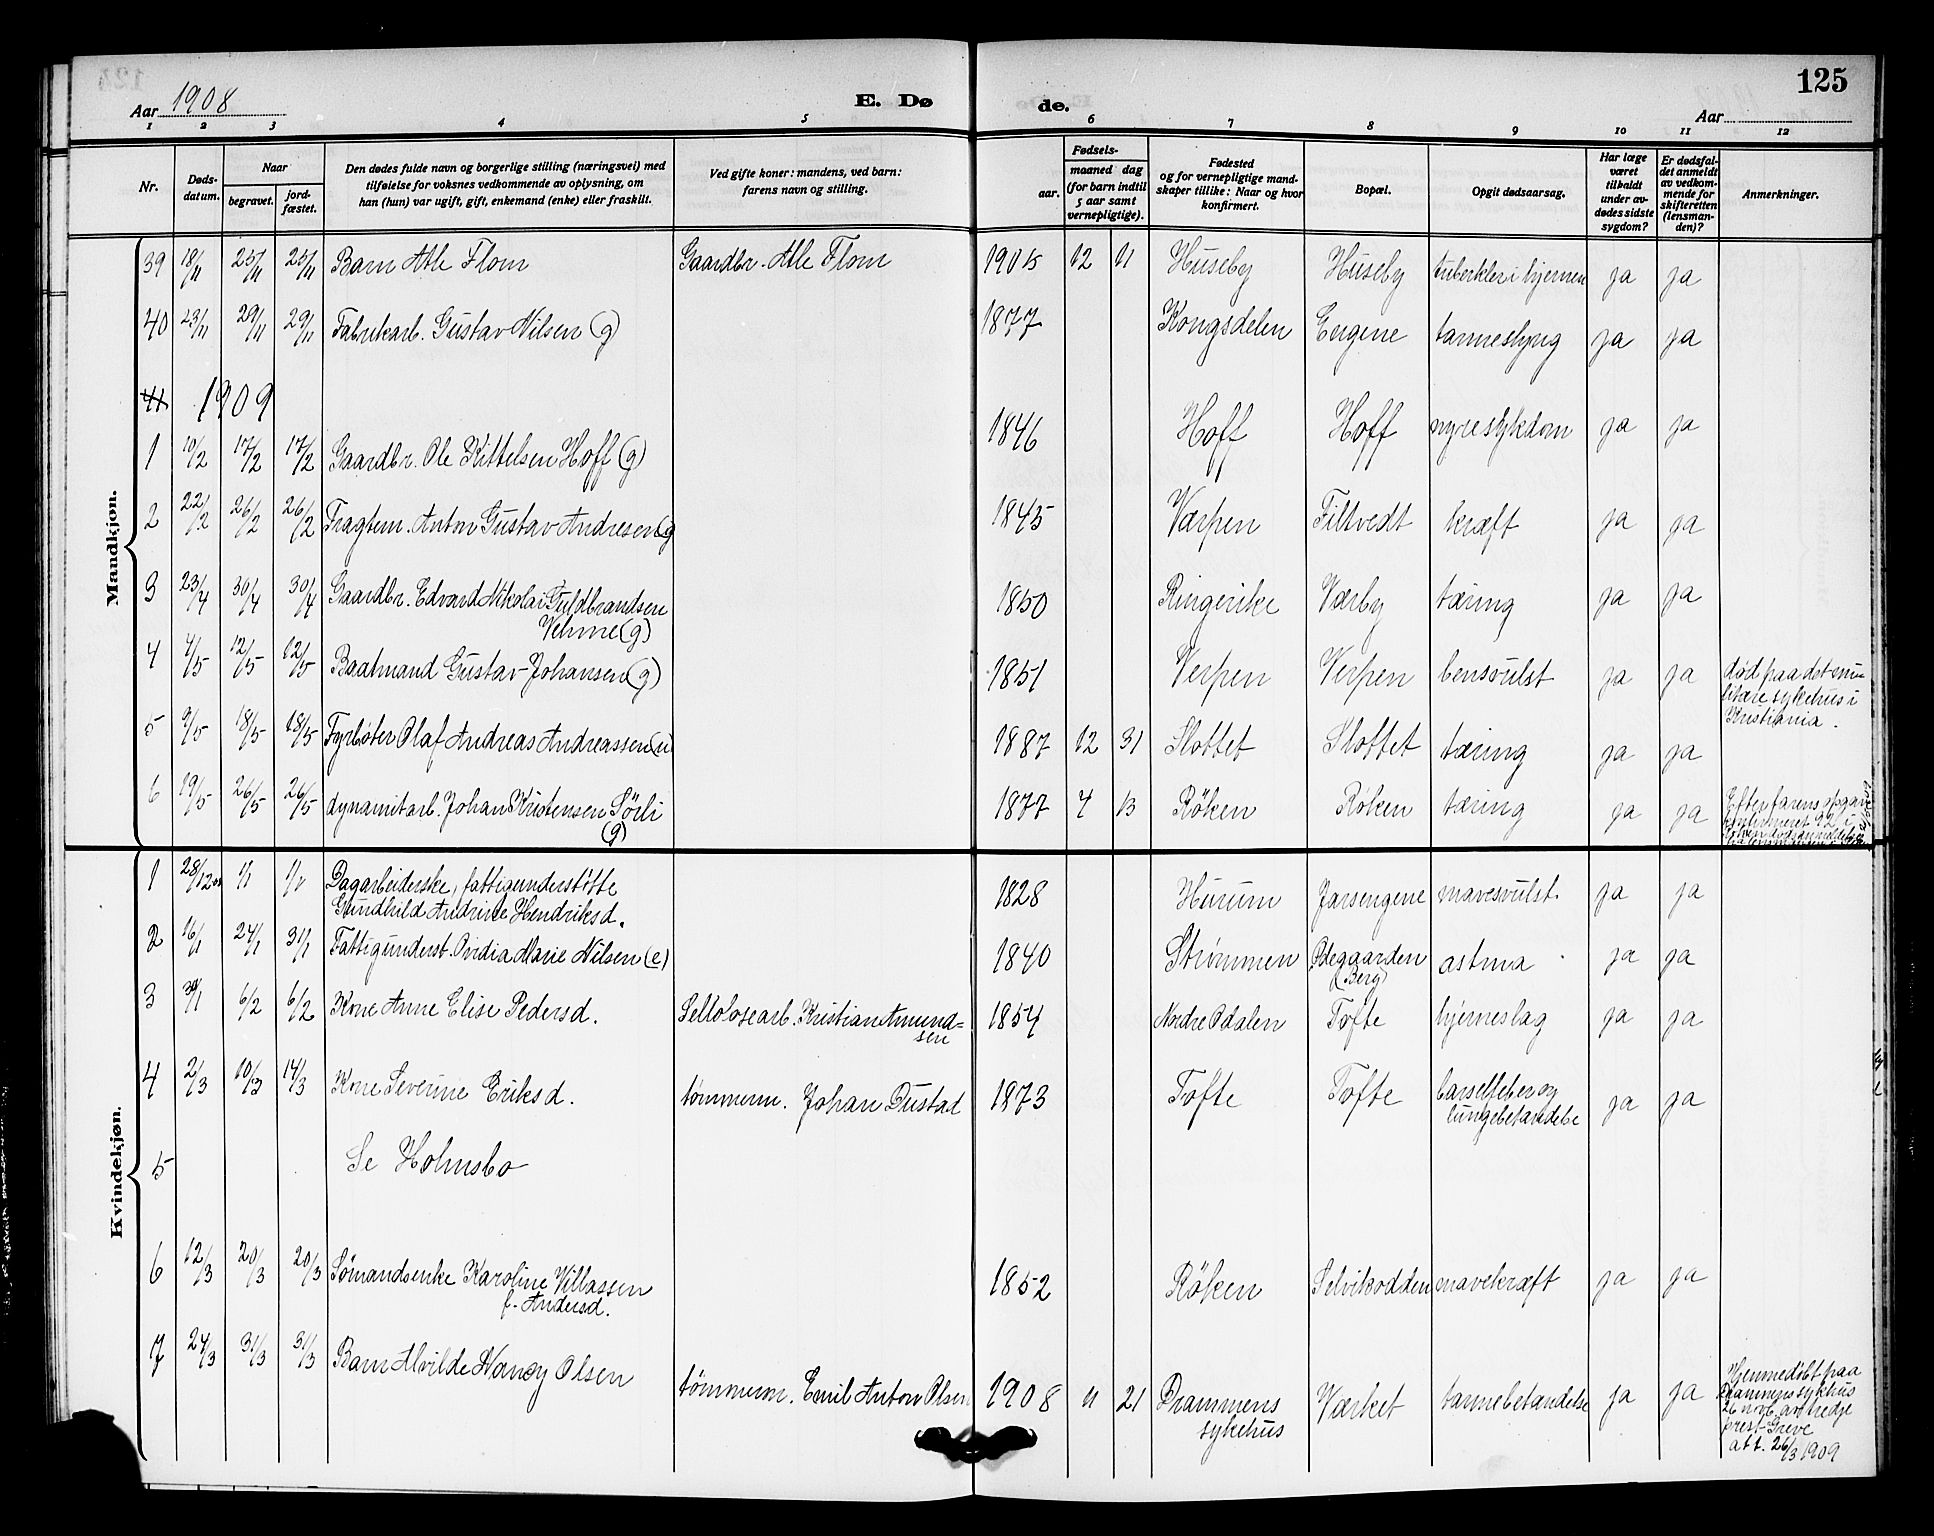 Aar 1908
E. Dø
de.
Aar
125
1 2 3 4 5 6 7 8 9 10 11 12
Nr.
Døds-
datum.
Naar
begravet.
jord-
fæstet.
Den dødes fulde navn og borgerlige stilling (næringsvei) med
tilføielse for voksnes vedkommende av oplysning, om
han (hun) var ugift, gift, enkemand (enke) eller fraskilt.
Ved gifte koner: mandens, ved barn:
farens navn og stilling.
Fødsels-
aar.
maaned dag
(for barn indtil
5 aar samt
vernepligtige).
Fødested
og for vernepligtige mand-
skaper tillike: Naar og hvor
konfirmert.
Bopæl.
Opgit dødsaarsag.
Har læge
været
tilkaldt
under av-
dødes sidste
sygdom?
Er dødsfal-
det anmeldt
av vedkom-
mende for
skifteretten
(lensman-
den)?
Anmerkninger.
Mandkjøn.
39 18/11 25/11 25/11 Barn Atle Flom Gaardbr. Atle Flom 1905 12 11 Huseby Huseby tuberkler i hjernen ja ja
40 23/11 29/11 29/11 Fabrikarb. Gustav Nilsen (g) 1877 Kongsdelen Engene ja ja
41 1909
1 10/2 17/2 17/2 Gaardbr. Ole Kittelsen Hoff (g) 1846 Hoff Hoff nyresykdom ja ja
2 22/2 26/2 26/2 Fragtem. Anton Gustav Andresen (g 1845 Værpen Filtvedt kræft ja ja
3 23/4 30/4 30/4 Gaardbr. Edvard Nikolai Guldbrandsen
Vehme (g) 1850 Ringerike Værby tæring ja ja
4 4/5 12/5 12/5 Baatmand Gustav Johansen (g) 1851 Verpen Verpen bensvulst ja ja
5 9/5 18/5 18/5 Fyrbøter Olaf Andreas Andreassen (u 1887 12 31 Slottet Slottet tæring ja ja død paa det mi-
litære sykehus i
Kristiania.
6 19/5 26/5 26/5 dynamitarb. Johan Kristensen Sørli
(g) 1877 4 13 Røken Røken tæring ja ja Efter farens opgav
konfirmeret 92 i
Kvindekjøn.
1 28/12 08 1/1 1/1 Dagarbeiderske, fattigunderstøtte
Gundhild Andrine Hendriksd. 1828 Hurum Jarsengene mavesvulst. ja ja
2 16/1 24/1 31/1 Fattigunderst. Ovidia Marie Nilsen (e) 1840 Strømmen Ødegaarden
(Berg) astma ja ja
3 30/1 6/2 6/2 Kone Anne Elise Pedersd. Sellolosearb. Kristian Amund-
sen 1854 Nordre Odalen Tofte hjerneslag ja ja
4 2/3 10/3 14/3 Kone Severine Eriksd. tømmerm. Johan Dustad 1873 Tofte Tofte barselfeber og
lungebetændelse ja ja
5 Se Holmsbo
6 12/3 20/3 20/3 Sømandsenke Karoline Villassen
f. Andersd. 1852 Røken Selvikodden mavekræft ja ja
7 24/3 31/3 31/3 Barn Alvilde Nancy Olsen tømmerm. Emil Anton Olsen 1908 11 21 Drammens
sykehus Værket ja ja Hjemmedøbt paa
Drammens sykhus
26 nvb. av tredje
prest Greve
att. 26/3 1909